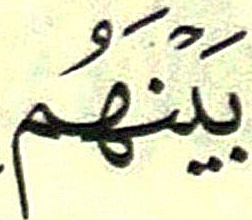 بَيْنَهُم